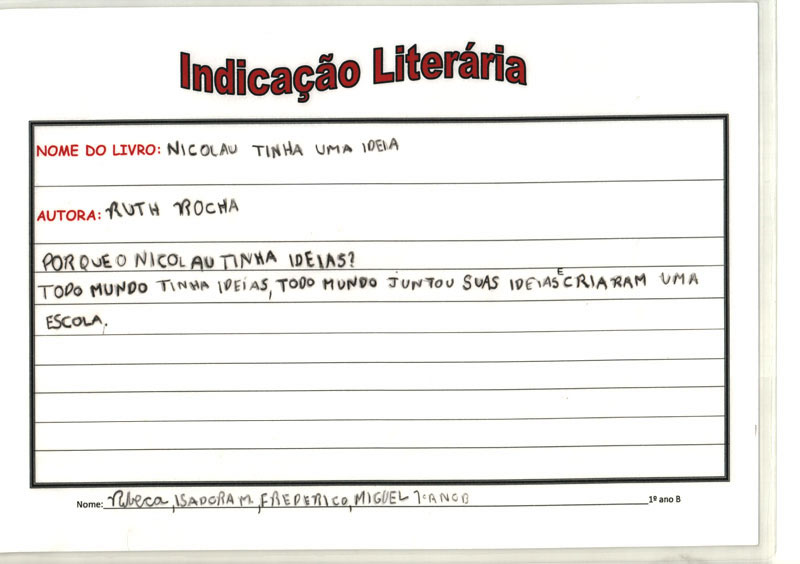 Indicação Literária
NOME DO LIVRO: NICOLAU TINHA UMA IDEIA
AUTORA: RUTH ROCHA
POR QUE O NICOLAU TINHA IDEIAS?
TODO MUNDO TINHA IDEIAS, TODO MUNDO JUNTOU SUAS IDEIAS E CRIARAM UMA
ESCOLA.
Nome: Rebeca, ISADORA M, FREDERICO, MIGUEL 1º ANO B 1º ano B